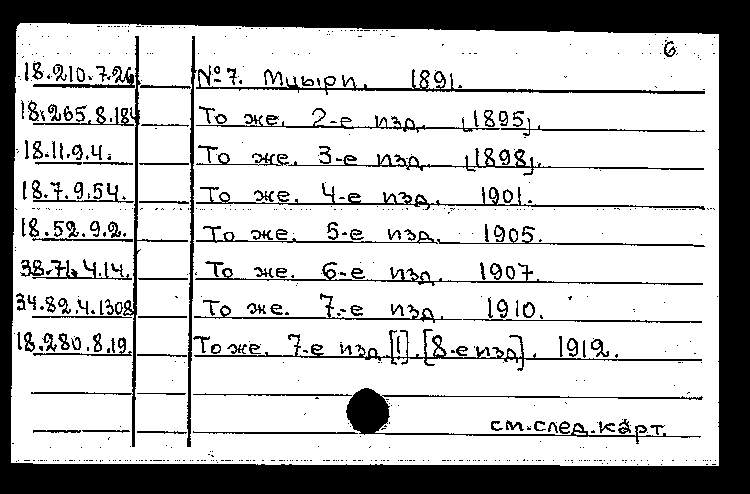 6
18.210.7.26 №7. Мцыри. 1891.
18.265.8.184 То же. 2-е изд. [1895].
18.11.9.4. То же. 3-е изд. [1898].
18.7.9.54. То же. 4-е изд. 1901.
18.52.9.2. То же. 5-е изд. 1905.
38.71.4.14. То же. 6-е изд. 1907.
34.82.4.1308 То же. 7-е изд. 1910.
18.280.8.19. То же. 7-е изд [!]. [8-е изд]. 1912.
см.след.карт.